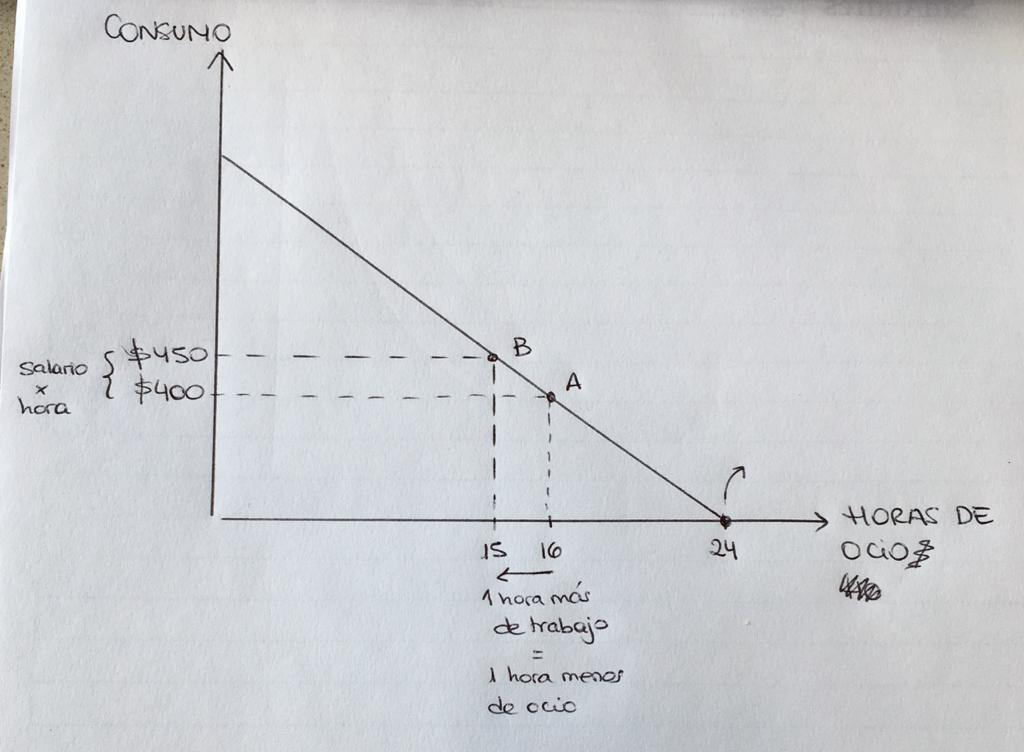 CONSUMO
$450
B
A
salario
x
hora
$400
HORAS DE
OCIO
15 16 24
1 hora más
de trabajo
=
1 hora menos
de ocio